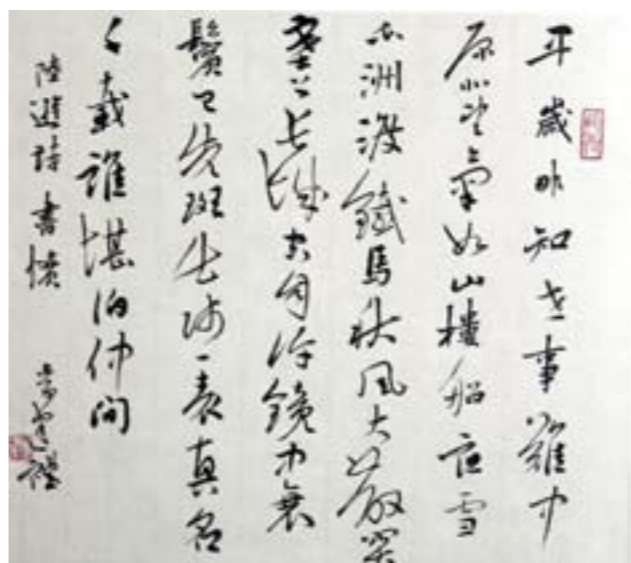 早歲那知世事難中
原北望氣如山樓船夜雪
瓜洲渡鐵馬秋風大散關
塞上長城空自許鏡中衰
鬢已先斑出師一表真名
世千載誰堪伯仲間
陸游詩書憤